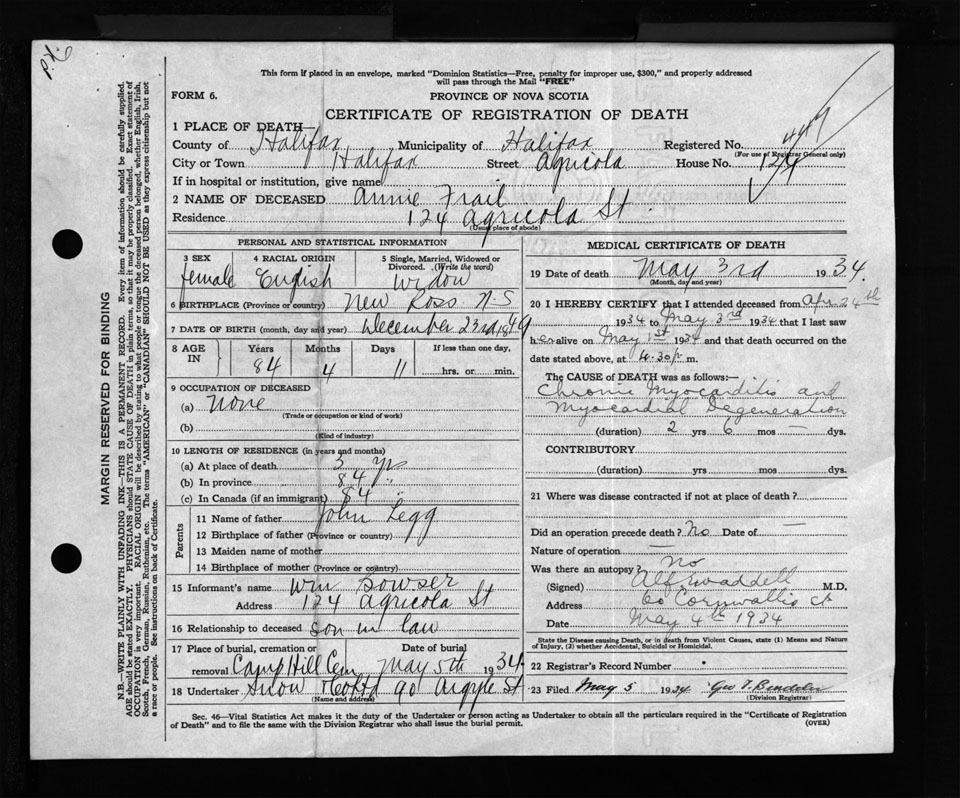 This form if placed in an envelope, marked "Dominion Statistics—Free, penalty for improper use, $300," and properly addressed
will pass through the Mail "FREE"
FORM 6.
PROVINCE OF NOVA SCOTIA
CERTIFICATE OF REGISTRATION OF DEATH
1 PLACE OF DEATH—
County of Halifax Municipality of Halifax Registered No.
(For use of Registrar General only)
City or Town Halifax Street Agricola House No. 124
If in hospital or institution, give name
2 NAME OF DECEASED Annie Frail
Residence 124 Agricola St.
(Usual place of abode)
PERSONAL AND STATISTICAL INFORMATION
3 SEX 4 RACIAL ORIGIN 5 Single, Married, Widowed or Divorced. (Write the word)
female English Widow
6 BIRTHPLACE (Province or country) New Ross N-S
7 DATE OF BIRTH (month, day and year) December 23rd, 1849
8 AGE IN Years Months Days If less than one day,
84 4 11 hrs. or min.
9 OCCUPATION OF DECEASED
(a) None
(Trade or occupation or kind of work)
(b)
(Kind of industry)
10 LENGTH OF RESIDENCE (in years and months)
(a) At place of death 3 yrs
(b) In province 84 "
(c) In Canada (if an immigrant) 84 "
Parents
11 Name of father John Legg
12 Birthplace of father (Province or country)
13 Maiden name of mother
14 Birthplace of mother (Province or country)
15 Informant's name Wm Bowser
Address 124 Agricola St
16 Relationship to deceased son in law
17 Place of burial, cremation or removal Date of burial
Camp Hill Cem May 5th 1934
18 Undertaker Snow 90 Argyle St
(Name and address)
MEDICAL CERTIFICATE OF DEATH
19 Date of death May 3rd 1934.
(Month, day and year)
20 I HEREBY CERTIFY that I attended deceased from Apr 24th
1934 to May 3rd 1934 that I last saw
her alive on May 1st 1934 and that death occurred on the
date stated above, at 4.30 p m.
The CAUSE OF DEATH was as follows:—
Chronic Myocarditis and
Myocardial Degeneration
(duration) 2 yrs 6 mos — dys.
CONTRIBUTORY
(duration) yrs mos dys.
21 Where was disease contracted if not at place of death? —
Did an operation precede death? No Date of —
Nature of operation —
Was there an autopsy? No
(Signed) Alf Waddell M.D.
Address 60 Cornwallis St
Date May 4th 1934
State the Disease causing Death, or in death from Violent Causes, state (1) Means and Nature
of Injury, (2) whether Accidental, Suicidal or Homicidal.
22 Registrar's Record Number
23 Filed May 5 1934 Geo T.
(Division Registrar)
Sec. 46—Vital Statistics Act makes it the duty of the Undertaker or person acting as Undertaker to obtain all the particulars required in the "Certificate of Registration
of Death" and to file the same with the Division Registrar who shall issue the burial permit. (OVER)
MARGIN RESERVED FOR BINDING
N.B.—WRITE PLAINLY WITH UNFADING INK—THIS IS A PERMANENT RECORD. Every item of information should be carefully supplied.
AGE should be stated EXACTLY. PHYSICIANS should STATE CAUSE OF DEATH in plain terms, so that it may be properly classified. Exact statement of
OCCUPATION is very important. RACIAL ORIGIN will be described by stating to what people or tongue the deceased person belonged, whether English, Irish,
Scotch, French, German, Russian, Ruthenian, etc. The terms "AMERICAN" or "CANADIAN" SHOULD NOT BE USED as they express citizenship but not
a race or people. See instructions on back of Certificate.